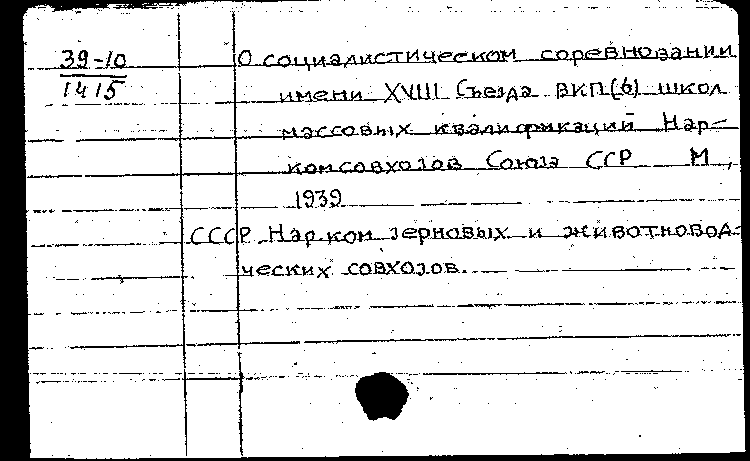 39-10
1415
О социалистическом соревновании
имени XVIII Съезда ВКП(б) школ
массовых квалификаций Нар-
комсовхозов Союза ССР М,
1939
СССР. Нарком зерновых и животновод-
ческих совхозов.